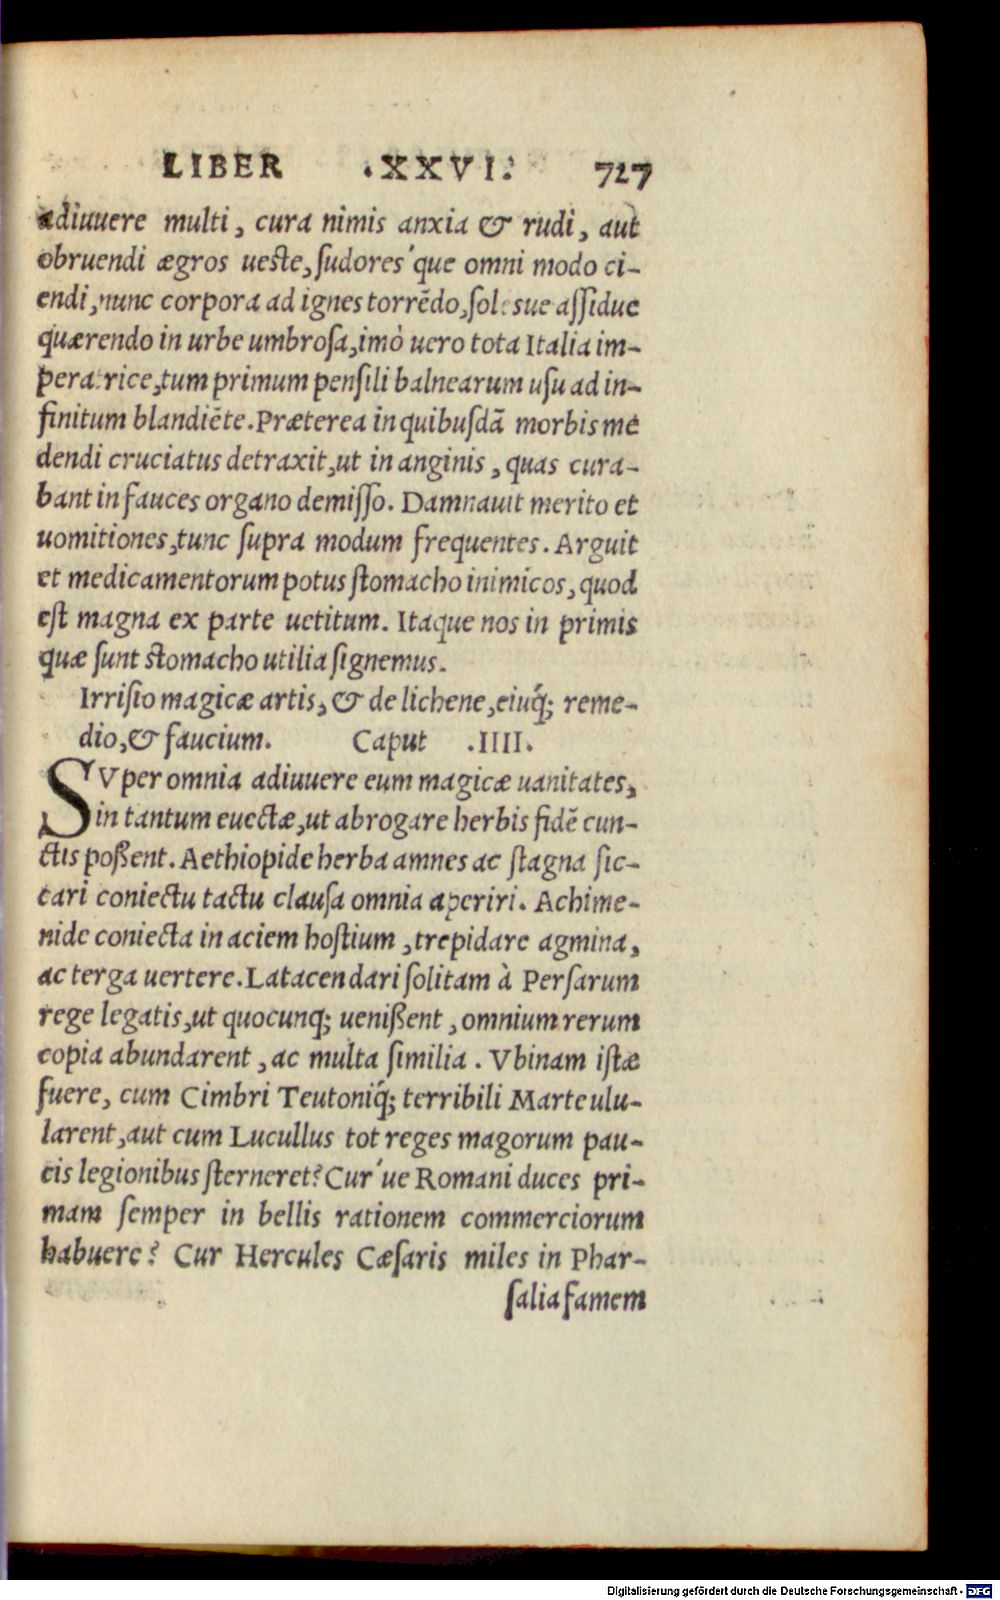 LIBER .XXVI. 727
adiuuere multi, cura nimis anxia & rudi, aut
obruendi ægros ueste, ſudores'que omni modo ci-
endi, nunc corpora ad ignes torrēdo, ſole sue aſſidue
quærendo in urbe umbroſa, imò uero tota Italia im-
peratrice, tum primum penſili balnearum uſu ad in-
finitum blandiēte. Præterea in quibuſdã morbis me
dendi cruciatus detraxit, ut in anginis, quas cura-
bant in fauces organo demiſſo. Damnauit merito et
uomitiones, tunc ſupra modum frequentes. Arguit
et medicamentorum potus ſtomacho inimicos, quod
eſt magna ex parte uetitum. Itaque nos in primis
quæ ſunt ſtomacho utilia ſignemus.
Irriſio magicæ artis, & de lichene, eiuq́; reme-
dio, & faucium. Caput .IIII.
SVper omnia adiuuere eum magicæ uanitates,
in tantum euectæ, ut abrogare herbis fidē cun-
ctis poßent. Aethiopide herba amnes ac ſtagna ſic-
cari coniectu tactu clauſa omnia aperiri. Achime-
nide coniecta in aciem hoſtium, trepidare agmina,
ac terga uertere. Latacen dari ſolitam à Perſarum
rege legatis, ut quocunq; uenißent, omnium rerum
copia abundarent, ac multa ſimilia. Vbinam iſtæ
fuere, cum Cimbri Teutoniq́; terribili Marte ulu-
larent, aut cum Lucullus tot reges magorum pau-
cis legionibus ſterneret? Cur'ue Romani duces pri-
mam ſemper in bellis rationem commerciorum
habuere? Cur Hercules Cæſaris miles in Phar-
ſalia famem
Digitalisierung gefördert durch die Deutsche Forschungsgemeinschaft - DFG